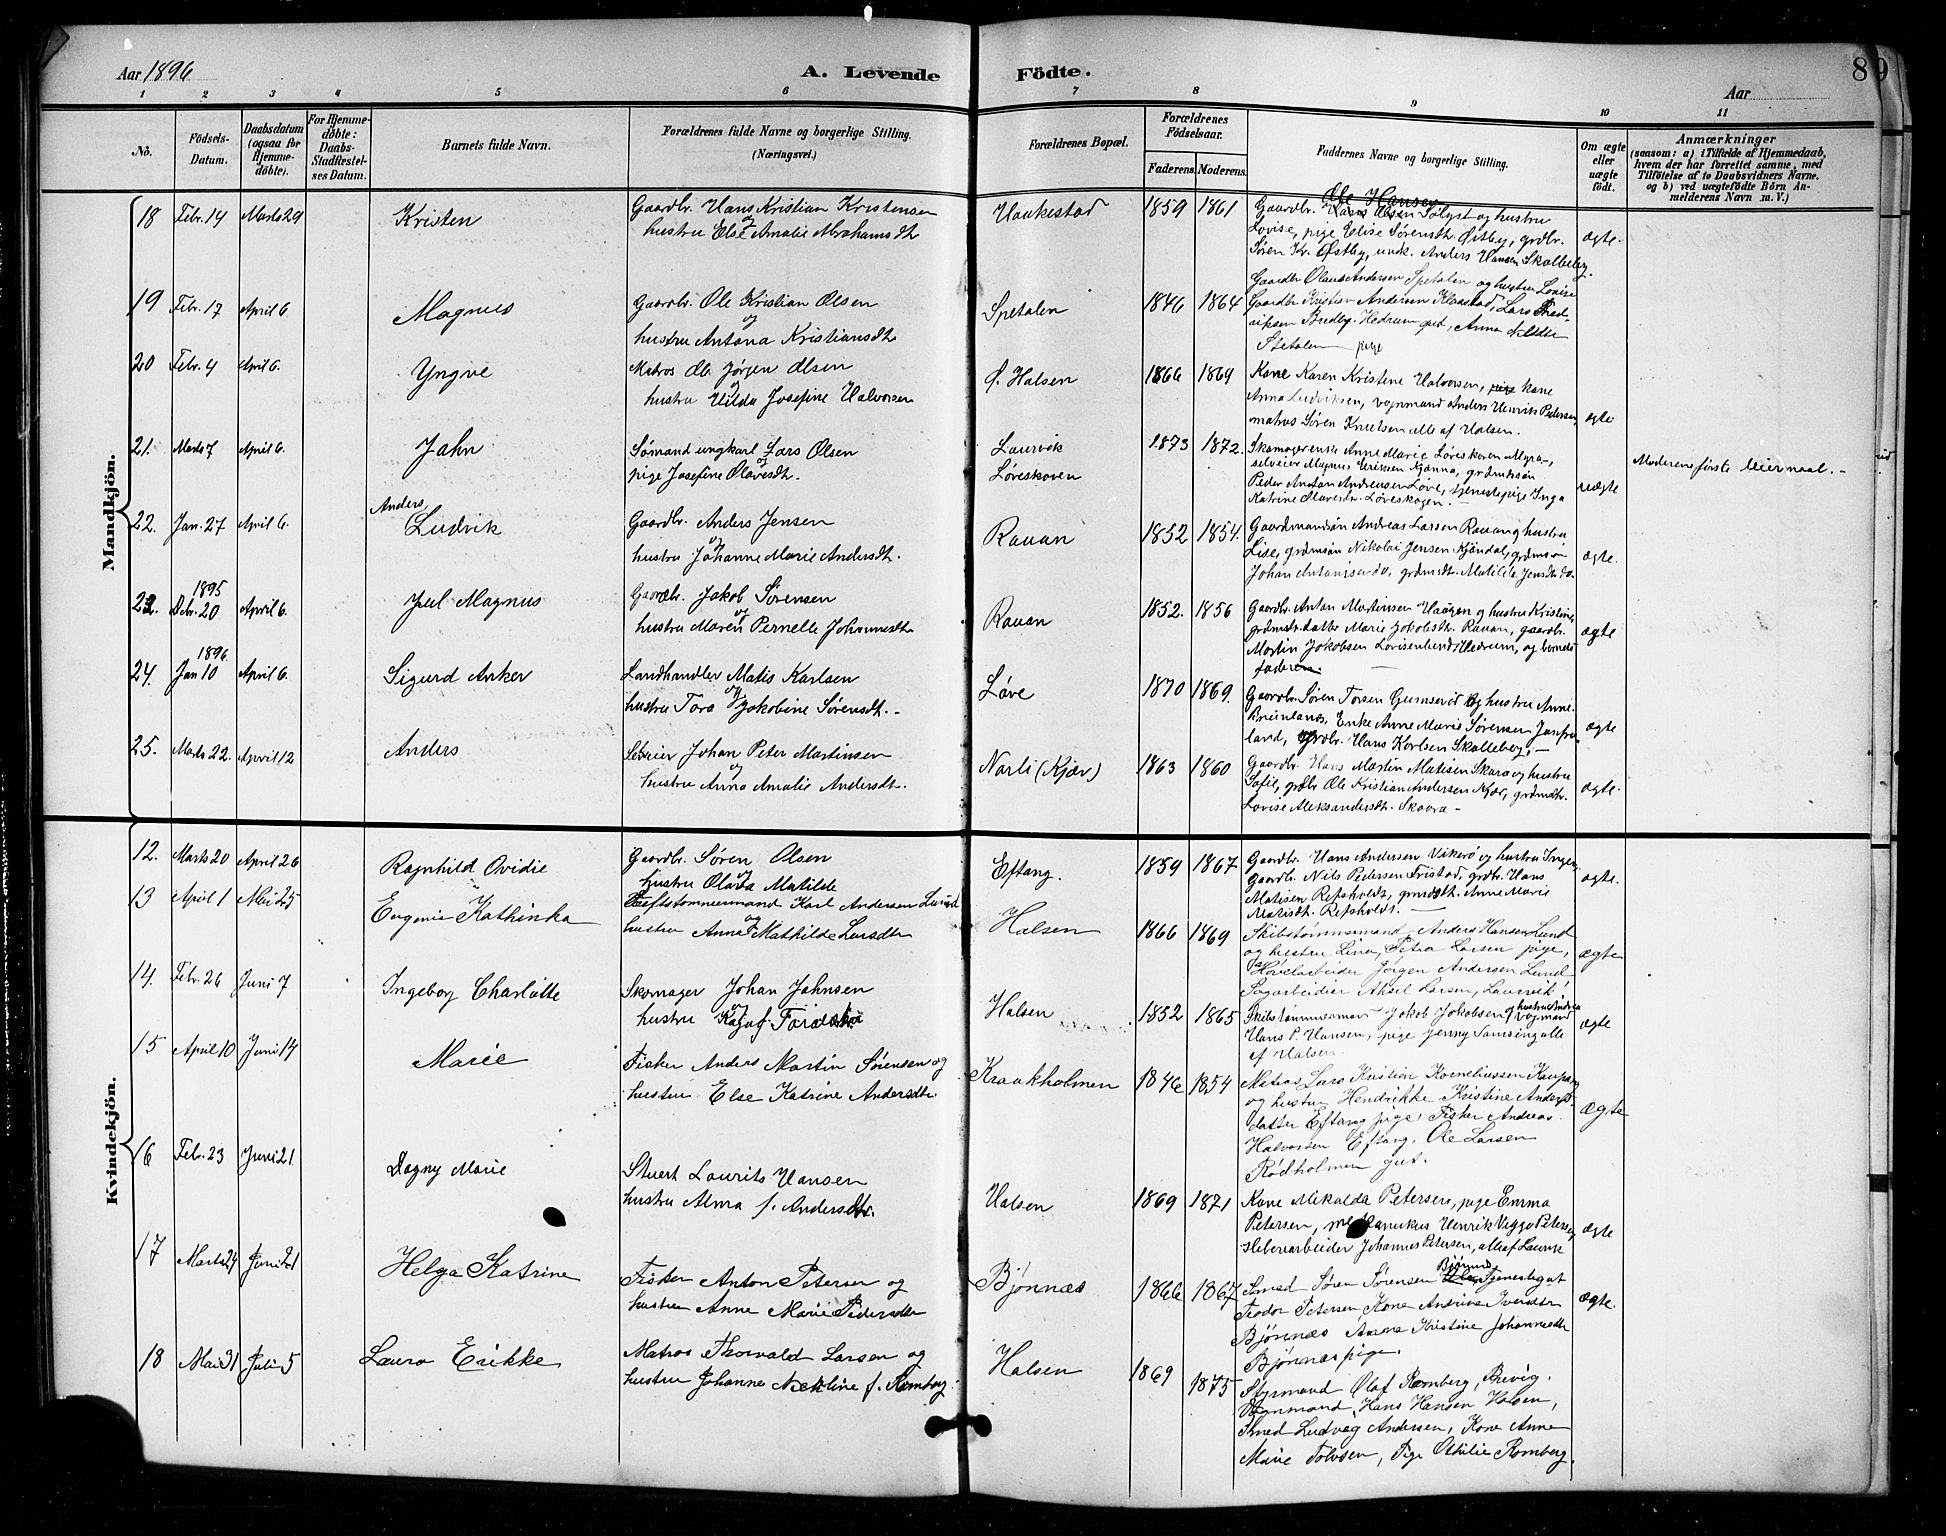 Aar 1896
A. Levende Födte.
89
Aar
1 2 3 4 5 6 7 8 9 10 11
No.
Födsels-Datum.
Daabsdatum (ogsaa for Hjemme-döbte).
For Hjemme-döbte: Daabs-Stadfæstel-ses Datum.
Barnets fulde Navn.
Forældrenes fulde Navne og borgerlige Stilling.
(Næringsvei.)
Forældrenes Bopæl.
Forældrenes Födselsaar.
Faderens. Moderens.
Faddernes Navne og borgerlige Stilling.
Om ægte eller uægte födt.
Anmærkninger
(saasom: a) i Tilfælde af Hjemmedaab, hvem der har forrettet samme, med Tilföielse af to Daabsvidners Navne. og b) ved uægtefödte Börn An-melderens Navn m. V.)
Mandkjön.
18 Febr. 14 Marts 29 Kristen
Gaardbr. Hans Kristian Kristensen
og
hustru Else Amalie Abrahamsdt.
Haakestad 1859 1861
Ole Hansen
Gaardbr. Hans Olsen Sølyst og hustru
Lovise, pige Elise Sørensdt. Østby, grdbr.
Søren Kr. Østby, unk. Anders Hansen Skalleberg.
ægte.
19 Febr. 17 April 6 Magnus
Gaardbr. Ole Kristian Olsen
og
hustru Antona Kristiansdt.
Spetalen 1846 1864
Gaardbr. Olaus Andersen Spetalen og hustru Lovise
Gaardbr. Kristian Andersen Klaastad, Lars Fred-
riksen Bredby. Hedrum, Anna
Spetalen pige
20 Febr. 4 April 6. Yngve
Matros Ole Jørgen Olsen
og
hustru Hilda Josefine Halvorsen
Ø. Halsen 1866 1869
Kone Karen Kristine Halvorsen, kone
Anna Ludviksen, vognmand Anders Henrik Petersen,
matros Søren Knutsen alle af Halsen.
ægte
21. Marts 7 April 6. Jahn
Sømand ungkarl Lars Olsen
og
pige Josefine Olavesdt.
Laurvik
Løveskoven
1873 1872.
Skomagerenke Anne Marie Løveskoven Myra,
selveier Magnus Eriksen Kjønna, grdmdsøn
Peder Anton Andreasen Løve, tjenestepige Inga
Katrine Olavesdt. Løveskogen.
uægte
Moderens første leiermaal. -
22. Jan. 27 April 6.
Anders
Ludvik
Gaardbr. Anders Jensen
og
hustru Johanne Marie Andersdt.
Rauan 1852 1854.
Gaardmandsøn Andreas Larsen Rauan og hustru
Lise, grdmsøn Nikolai Jensen Kjøndal, grdmsøn
Johan Antonisen do, grdmsdt. Matilde Jensdt. do.
ægte.
23.
1895
Debr. 20 April 6. Juel Magnus
Gaardbr. Jakob Sørensen
og
hustru Maren Pernelle Johannesdt.
Rauan 1852. 1856
Gaardbr. Anton Martinsen Haagen og hustru Kristine,
grdmsdt. datter Marie Jakobsdt. Rauan, gaardbr.
Martin Jakobsen Lovisenlund Hedrum, og barnets
faderen.
ægte
24.
1896
Jan 10 April 6. Sigurd Anker
Landhandler Matis Karlsen
og
hustru Tora Jakobine Sørensdt. -
Løve 1870 1869.
Gaardbr. Søren Torsen Gumserød og hustru Anne
Breinland, Enke Anne Marie Sørensen
land, grdbr. Hans Karlsen Skalleberg, -
ægte
25. Marts 22. April 12 Anders
Selveier Johan Peter Martinsen
og
hustru Anna Amalie Andersdt.
Narli (Kjær) 1863 1860
Gaardbr. Hans Martin Matisen Skara og hustru
Sofie, grdbr. Ole Kristian Andersen Kjær, grdmdt.
Lovise Aleksandersdt. Skaara -
ægte.
Kvindekjön.
12. Marts 20 April 26 Ragnhild Ovidie
Gaardbr. Søren Olsen
og
hustru Olava Matilde
Eftang. 1859 1867
Gaardbr. Hans Andersen Vikerø og hustru Inger,
Gaardbr. Nils Pedersen Fristad, grdbr. Hans
Matisen Refsholdt, grmdsdt. Anne Marie
Matisdt. Refsholdt. -
ægte.
13 April 1 Mai 25 Eugenie Kathinka
Skibstømmermand Karl Andersen Lund
og
hustru Anna Mathilde Larsdtr
Halsen 1866 1869
Skibstømmermand Anders Hansen Lund
og hustru Lina, Petra Larsen pige,
Høvelarbeider Jørgen Andersen Lund
Sagarbeider Aksel Larsen, Laurvik
ægte
14. Febr. 26 Juni 7 Ingeborg Charlotte
Skomager Johan Jahnsen
og
hustru Kaja f.
Halsen 1852 1865
Skibstømmermand Jakob Jakobsen og hustru
vognmand
Hans P. Hansen, pige Jenny Samsing alle
af Halsen.
ægte
15 April 10 Juni 14 Marie
Fisker Anders Martin Sørensen og
hustru Else Katrine Andersdtr
Kraakholmen 1846 1854
Matros Lars Kristian Korneliussen Kaupang
og hustru Hendrikke Kristine Anders-
datter Eftang pige Fisker Andreas
Halvorsen Eftang, Ole Larsen
Rødholmen gut.
ægte
16 Febr. 23 Juni 21. Dagny Marie
Stuert Laurits Hansen
hustru Alma f. Andersdtr.
Halsen 1869 1871
Kone Mikalda Petersen, pige Emma
Petersen, mekanikus Henrik Viggo Petersen
Sliberiarbeider Johannes Petersen, alle af Laurvik
ægte
17 Marts 24 Juni 21 Helga Katrine
Fisker Anton Petersen og
hustru Anne Marie Pedersdtr
Bjønnæs 1866 1867
Smed Søren Sørensen Bjønnes Tjenestegut
Teodor Petersen, Kone Andrine Iversdtr
Bjønnæs Anna Kristine Johannesdtr
Bjønnæs pige.
ægte.
18 Mai 31 Juli 5 Laura Erikke
Matros Thorvald Larsen og
hustru Johanne Nekline f. Romberg.
Halsen 1869 1875
Styrmand Olaf Romberg, Brevig.
Vognmand Hans Hansen Halsen,
Smed Ludvig Andersen, Kone Anne
Marie Tolvsen, Pige Othilie Romberg.